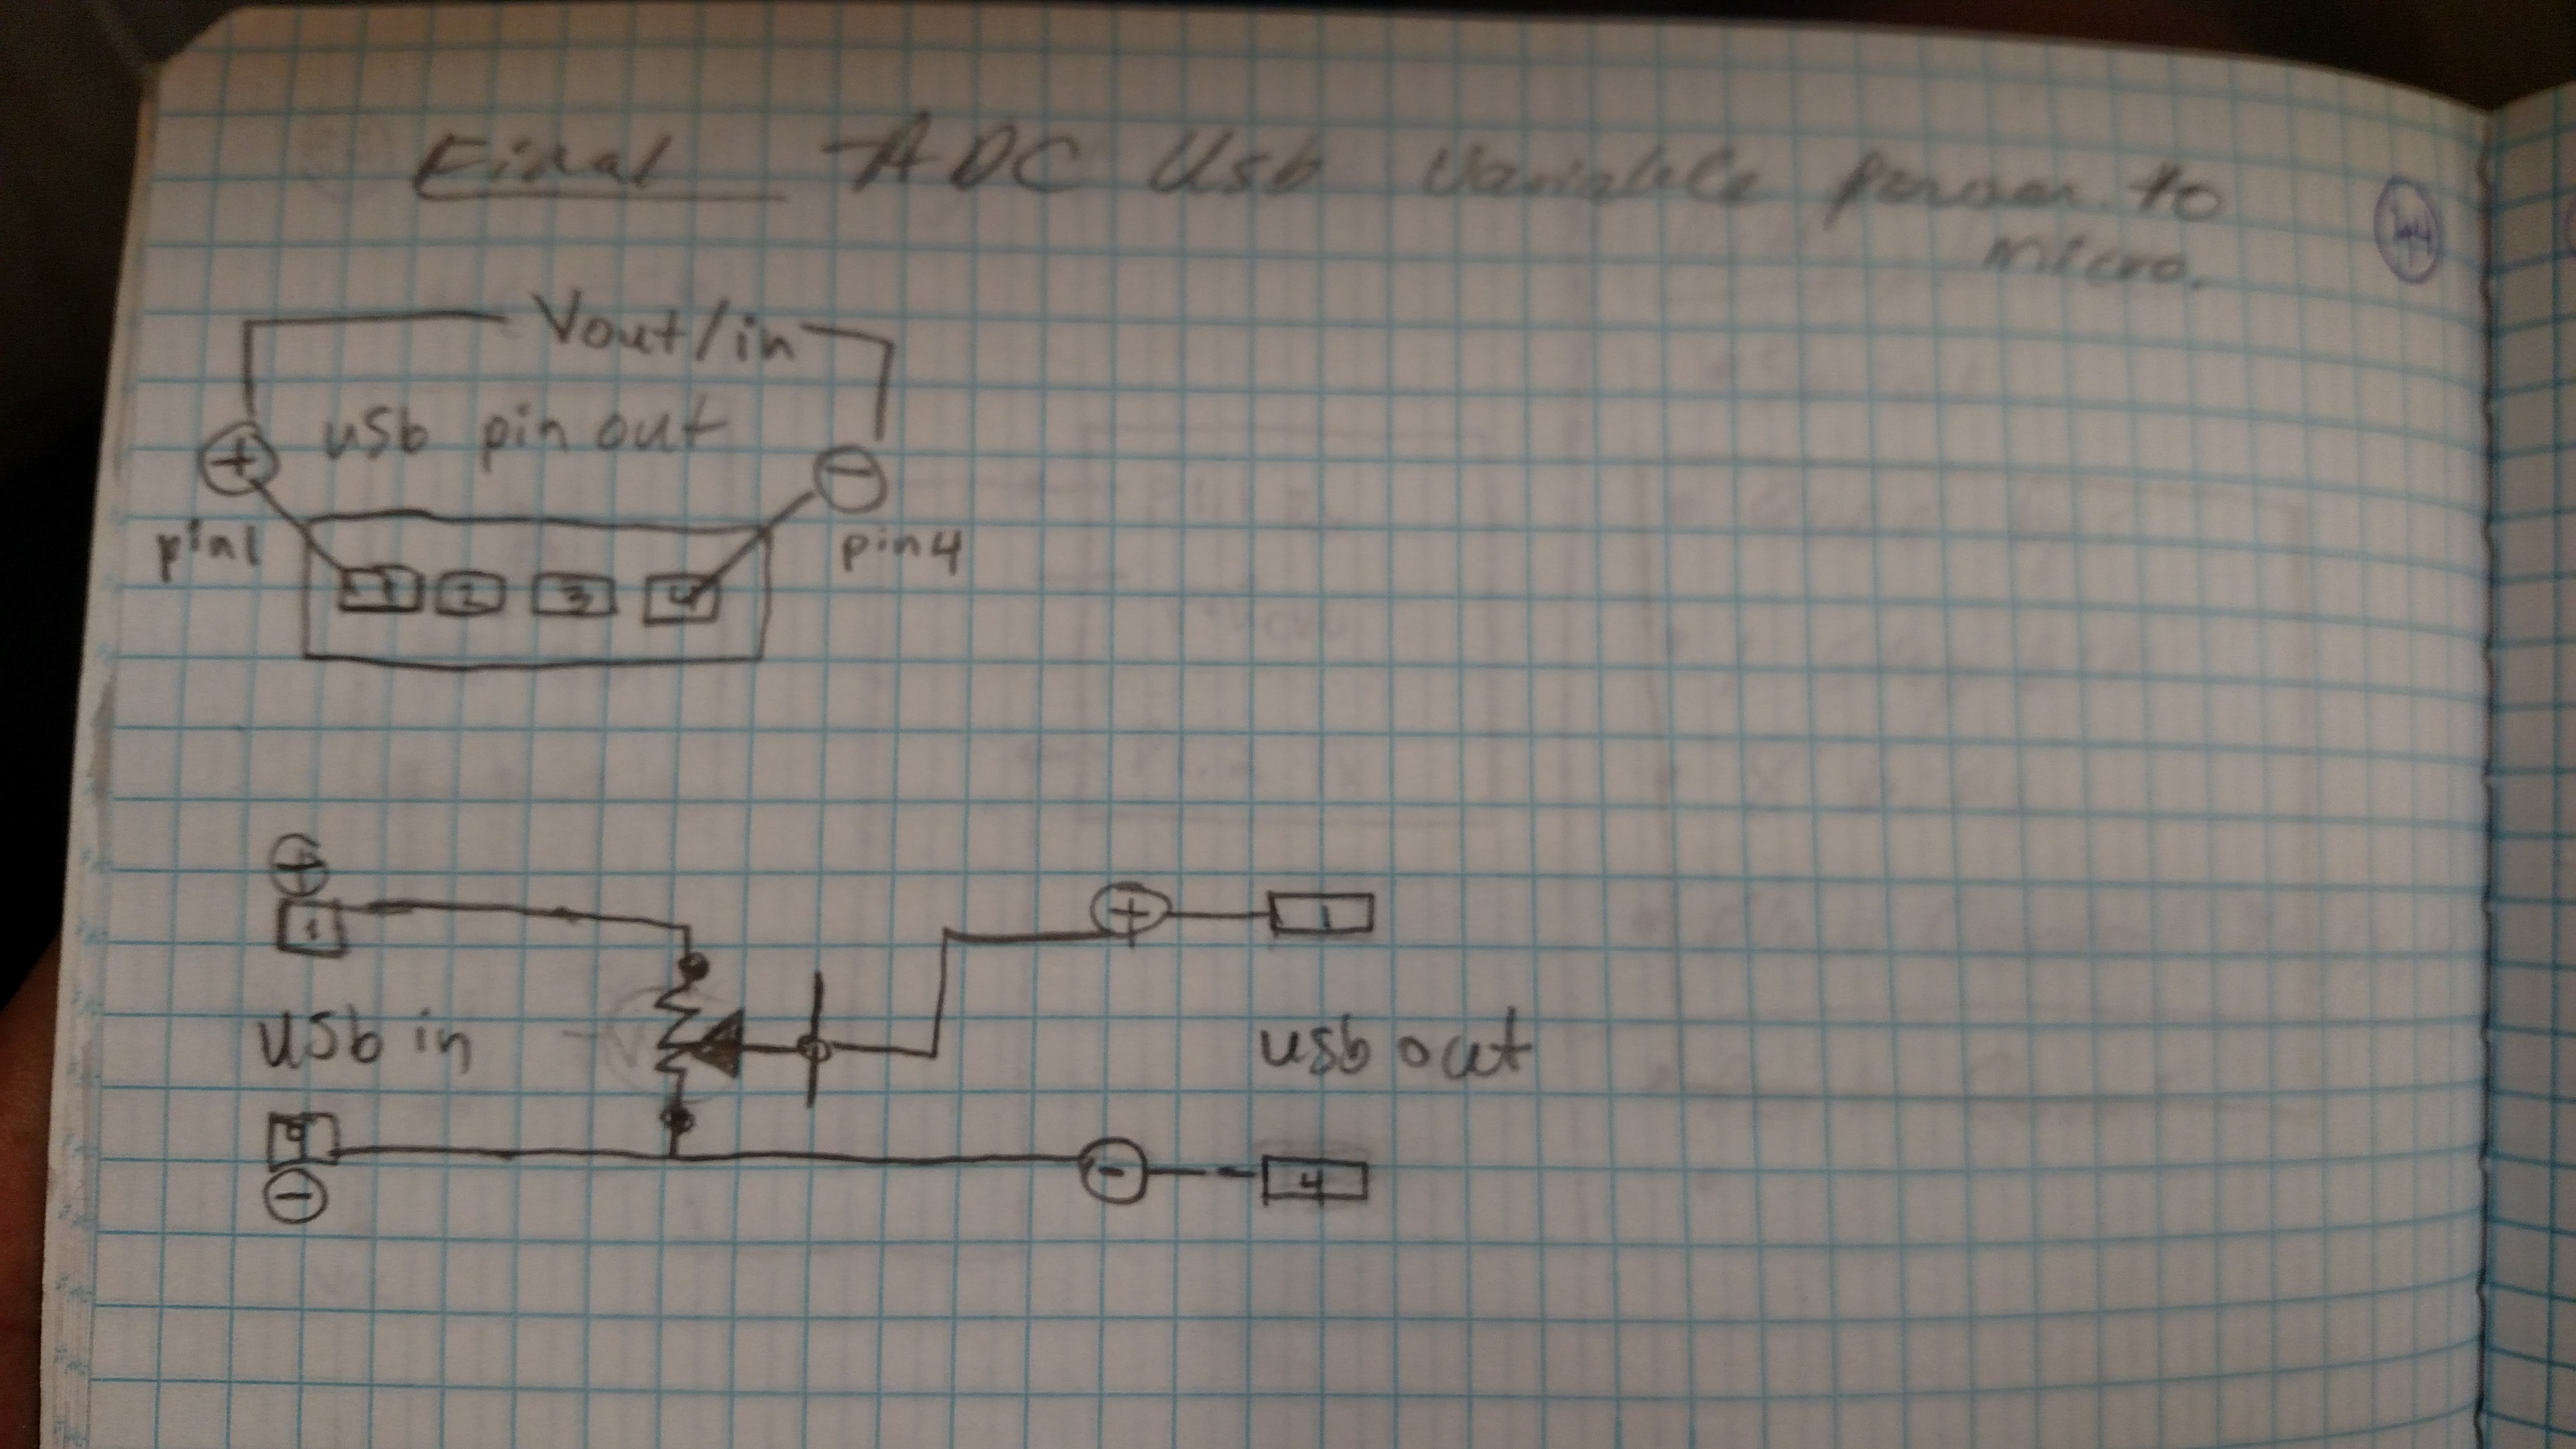 Final - ADC Usb Variable power to
micro.
44
Vout/in
usb pin out
+ -
pin1 pin4
1 2 3 4
+
1 + 1
usb in usb out
4 - 4
-